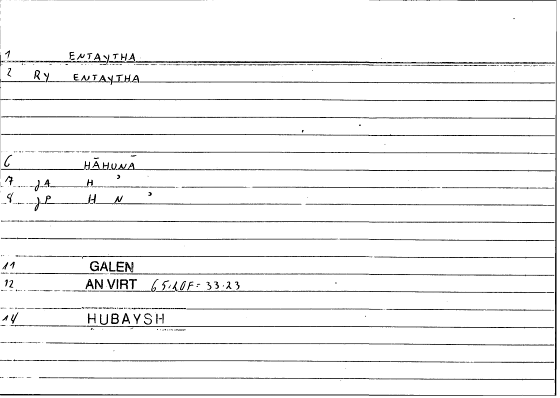 1 ENTAYTHA
2 Ry ENTAYTHA
6 HĀHUNĀ
7 JA H ʾ
8 JP H N ʾ
11 GALEN
12 AN VIRT 65.20F = 33.23
14 HUBAYSH